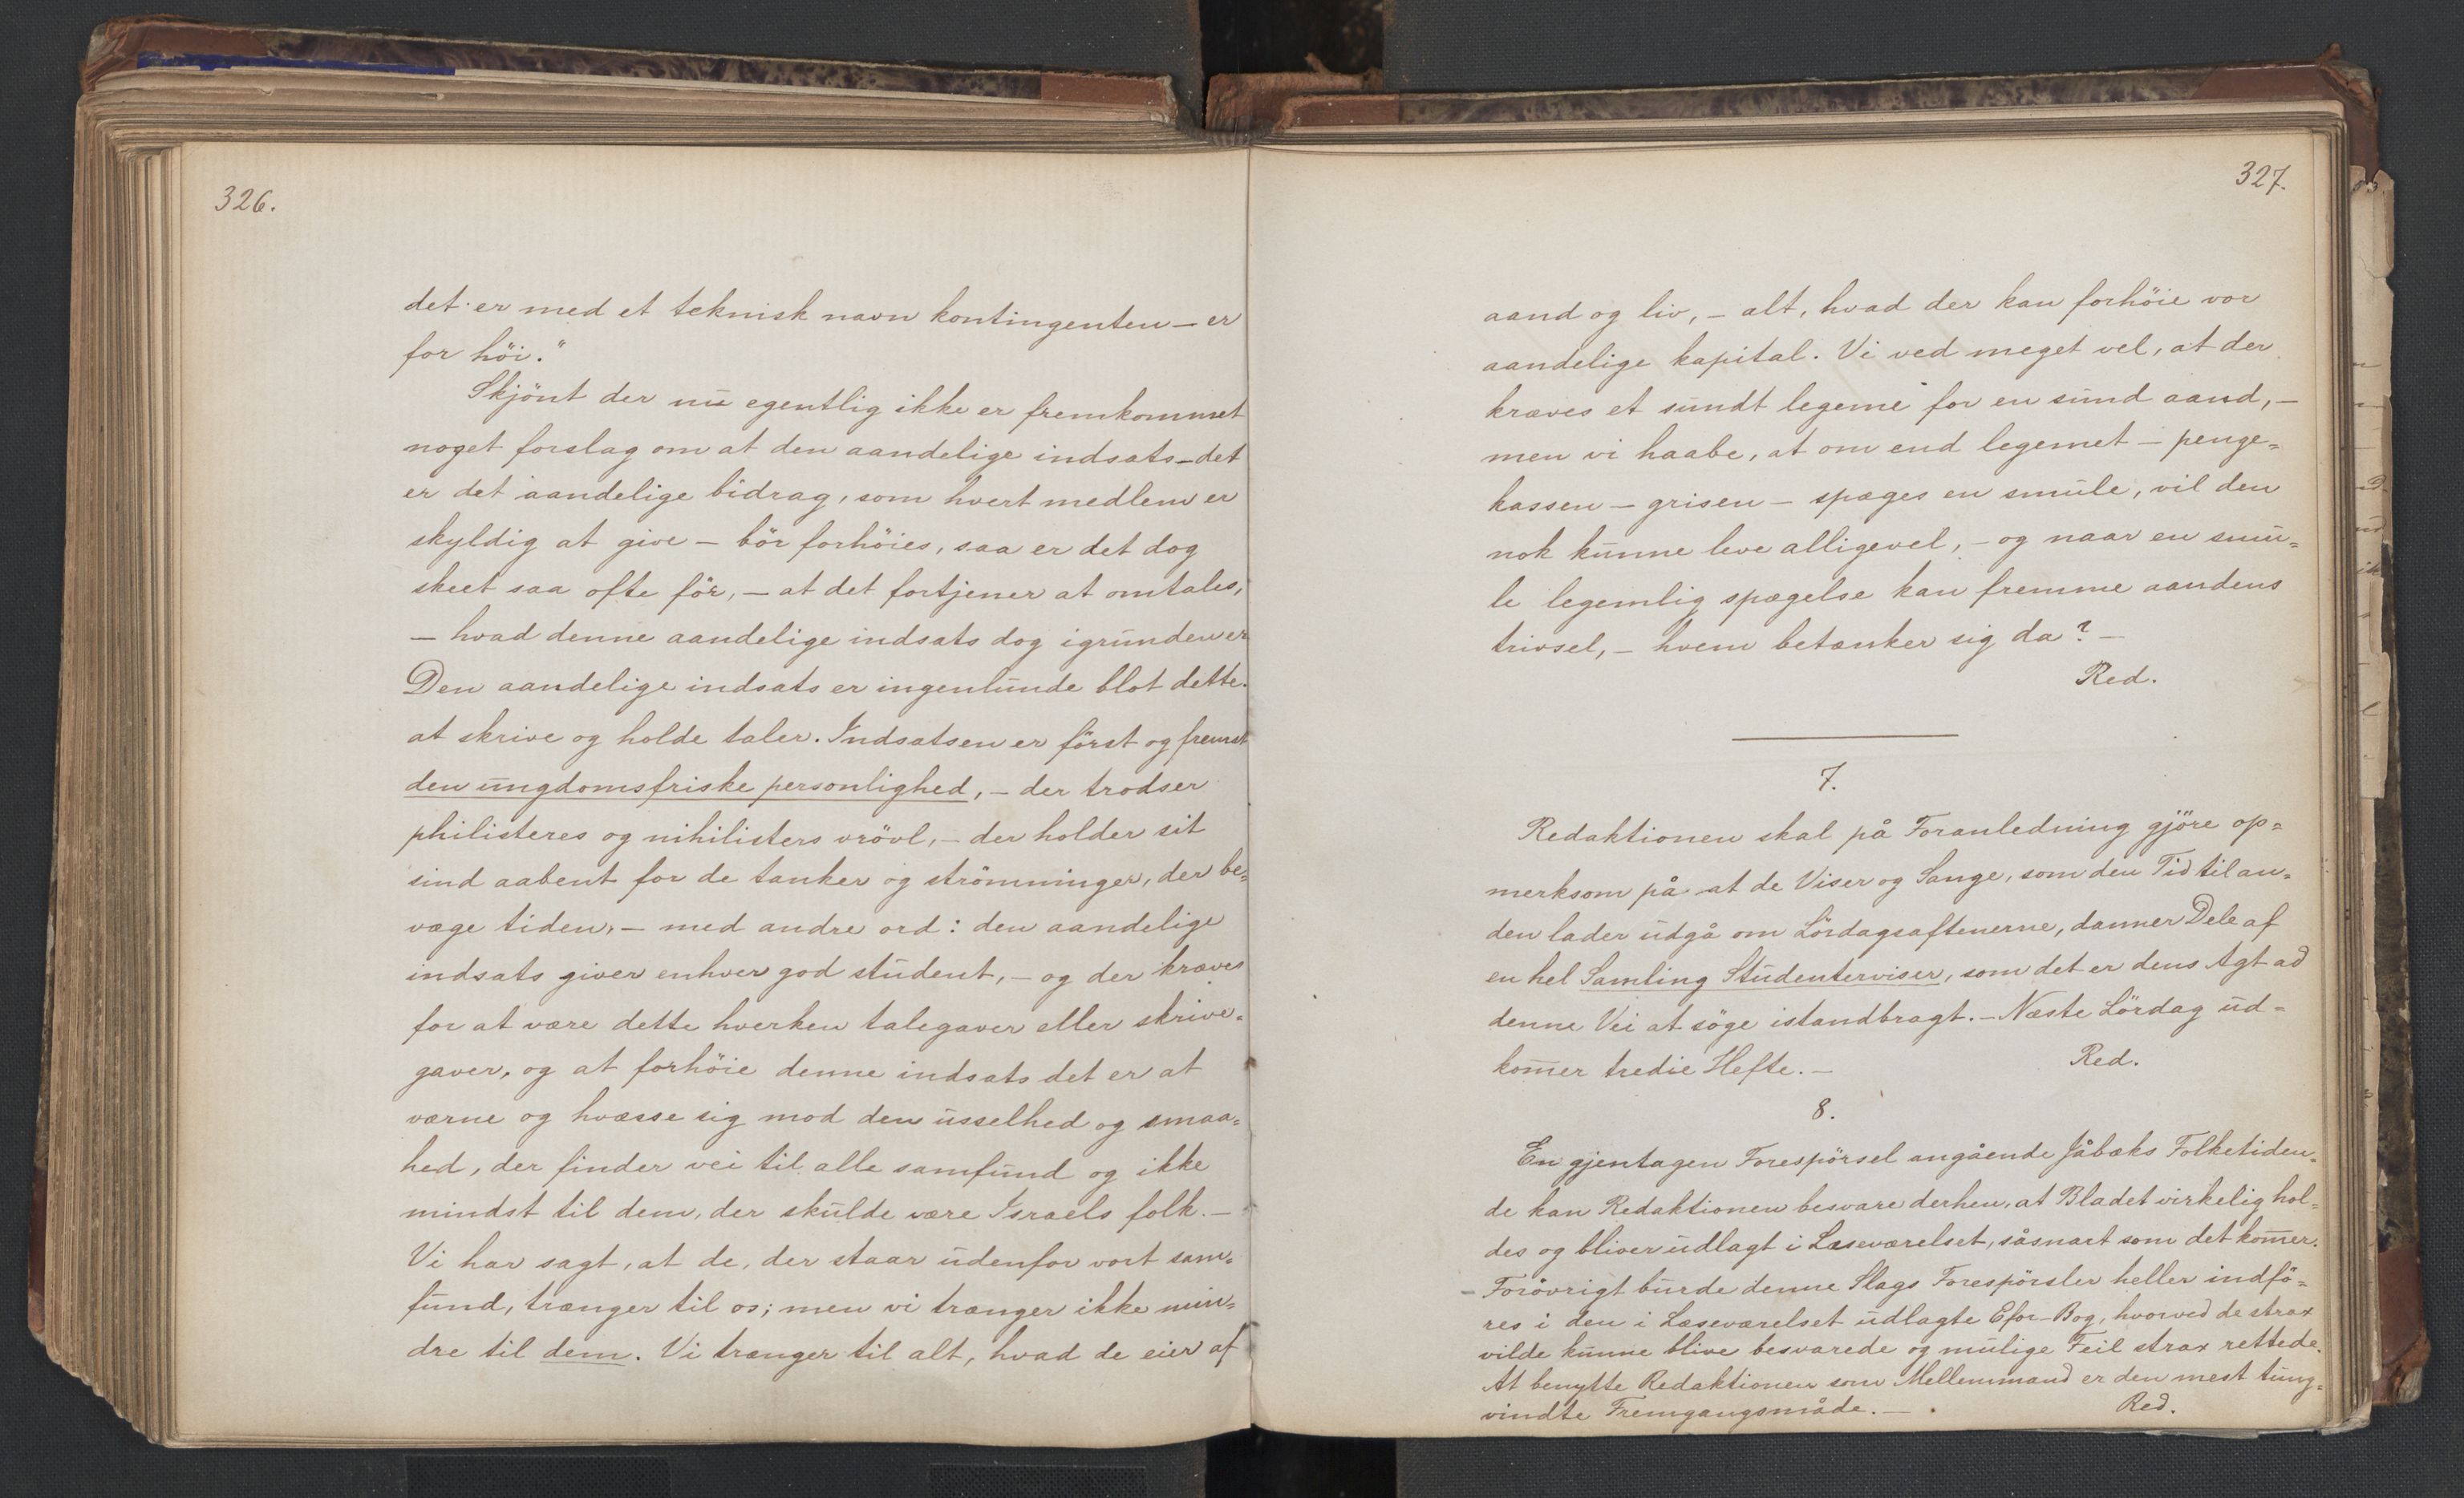 326.
det er med et teknisk navn kontingenten — er
for höi."
Skjönt der nu egentlig ikke er fremkommet
noget forslag om at den aandelige indsats — det
er det aandelige bidrag, som hvert medlem er
skyldig at give — bör forhöies, saa er det dog
skeet saa ofte för, — at det fortjener at omtales,
— hvad denne aandelige indsats dog igrunden er
Den aandelige indsats er ingenlunde blot dette.
at skrive og holde taler. Indsatsen er först og fremst
den ungdomsfriske personlighed, — der trodser
philisteres og nihilisters vrövl, — der holder sit
sind aabent for de tanker og strömninger, der be=
væge tiden, — med andre ord: den aandelige
indsats giver enhver god student, — og der kræves
for at være dette hverken talegaver eller skrive=
gaver, og at forhöie denne indsats det er at
værne og hvæsse sig mod den usselhed og smaa=
hed, der finder vei til alle samfund og ikke
mindst til dem, der skulde være Israels folk. —
Vi har sagt, at de, der staar udenfor vort sam=
fund, trænger til os; men vi trænger ikke min=
dre til dem. Vi trænger til alt, hvad de eier af
327.
aand og liv, — alt, hvad der kan forhöie vor
aandelige kapital. Vi ved meget vel, at der
kræves et sundt legeme for en sund aand, —
men vi haabe, at om end legemet — penge=
kassen — grisen — spæges en smule, vil den
nok kunne leve alligevel, — og naar en smu=
le legemlig spægelse kan fremme aandens
trivsel, — hvem betænker sig da? —
Red.
7.
Redaktionen skal på Foranledning gjöre op=
merksom på at de Viser og Sange, som den Tid til an=
den lader udgå om Lördagsaftenerne, danner Dele af
en hel Samling Studenterviser, som det er dens Agt ad
denne Vei at söge istandbragt. — Næste Lördag ud=
kom̄er tredie Hefte. — Red.
8.
En gjentagen Forespörsel angående Jåbæks Folketiden=
de kan Redaktionen besvare derhen, at Bladet virkelig hol=
des og bliver udlagt i Læseværelset, såsnart som det kom̄er.
— Forövrigt burde denne Slags Forespörsler heller indfö=
res i den i Læseværelset udlagte Efor-Bog, hvorved de strax
vilde kunne blive besvarede og mulige Feil strax rettede.
At benytte Redaktionen som Mellemmand er den mest tung=
vindte Fremgangsmåde. — Red.